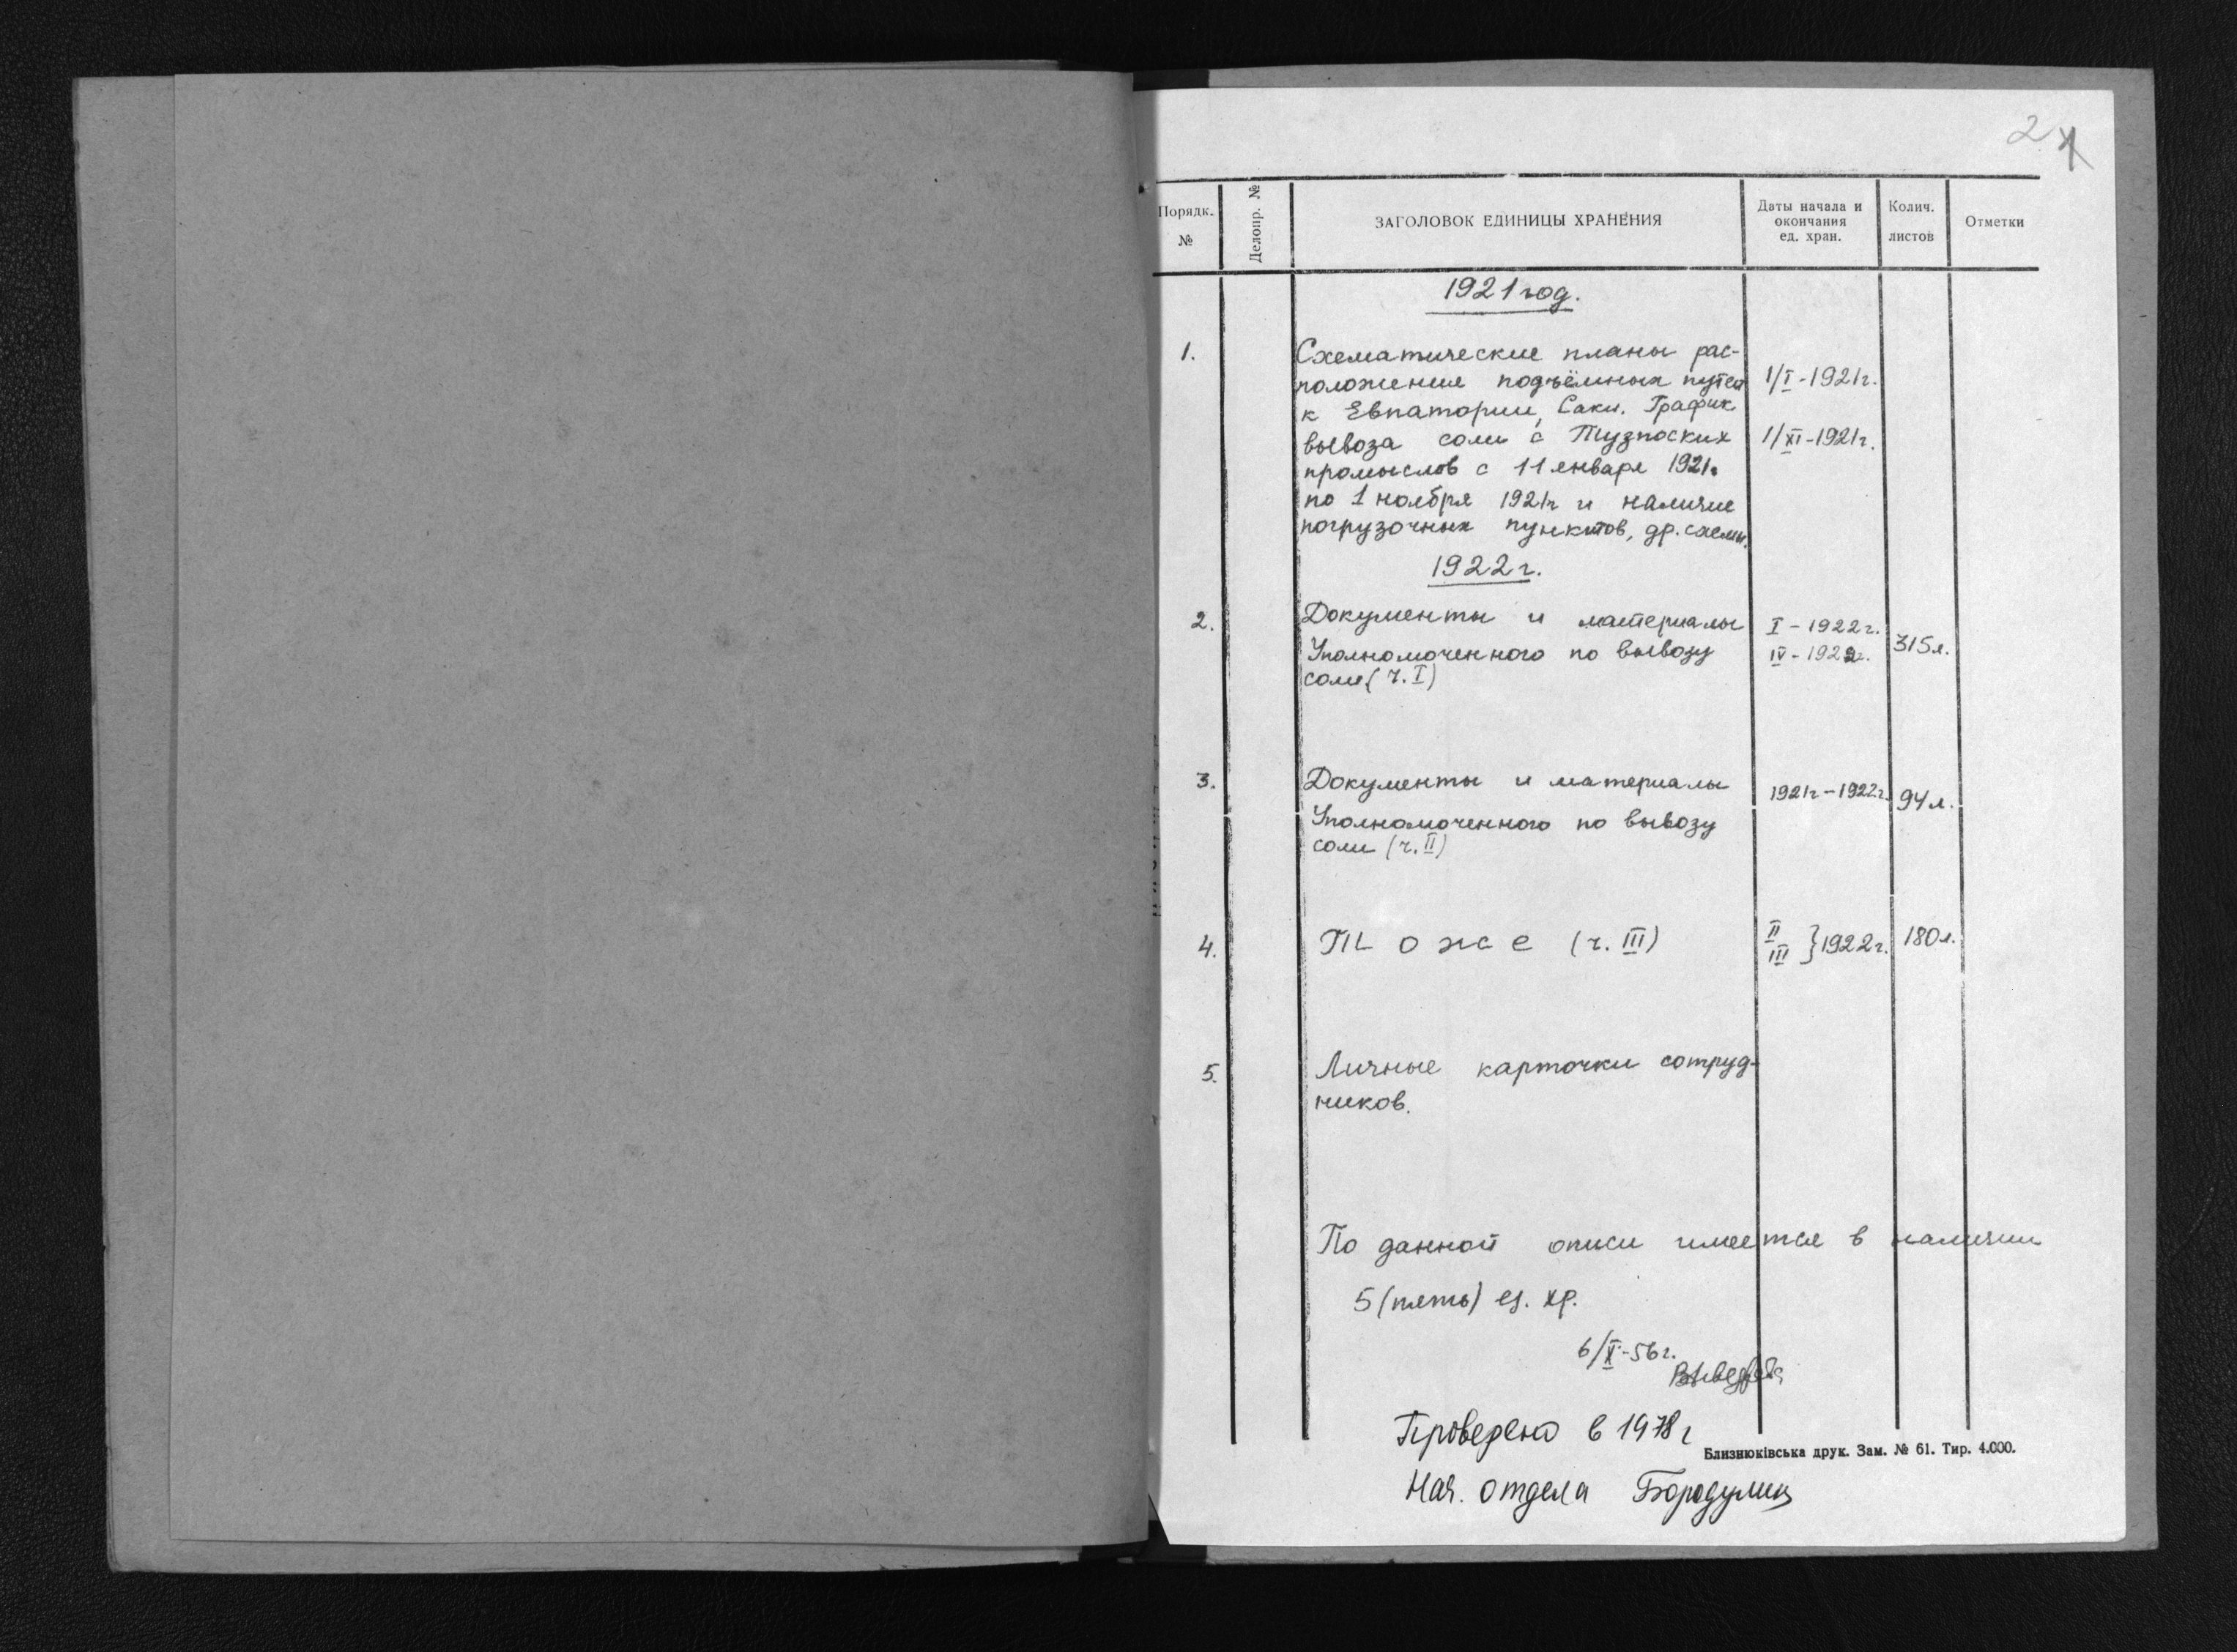 2
Порядк. №
Делопр. №
ЗАГОЛОВОК ЕДИНИЦЫ ХРАНЕНИЯ
Даты начала и окончания ед. хран.
Колич. листов
Отметки
1921 год.
1.
Схематические планы рас-
положения подъёмных путей
к Евпатории, Саки. График
вывоза соли с Тузлоских
промыслов с 11 января 1921г
по 1 ноября 1921г и наличие
погрузочных пунктов, др. схемы.
1/I-1921г.
1/XI-1921г.
1922г.
2.
Документы и материалы
Уполномоченного по вывозу
соли (ч. I)
I-1922г.
IV-1922г.
315л.
3.
Документы и материалы
Уполномоченного по вывозу
соли (ч. II)
1921г-1922г.
94л.
4.
То же (ч. III)
II
III } 1922г.
180л.
5.
Личные карточки сотруд-
ников.
По данной описи имеется в наличии
5 (пять) ед. хр.
6/X-56г.
Проверено в 1978г
Близнюківська друк. Зам. № 61. Тир. 4.000.
Нач. отдела Бородулин